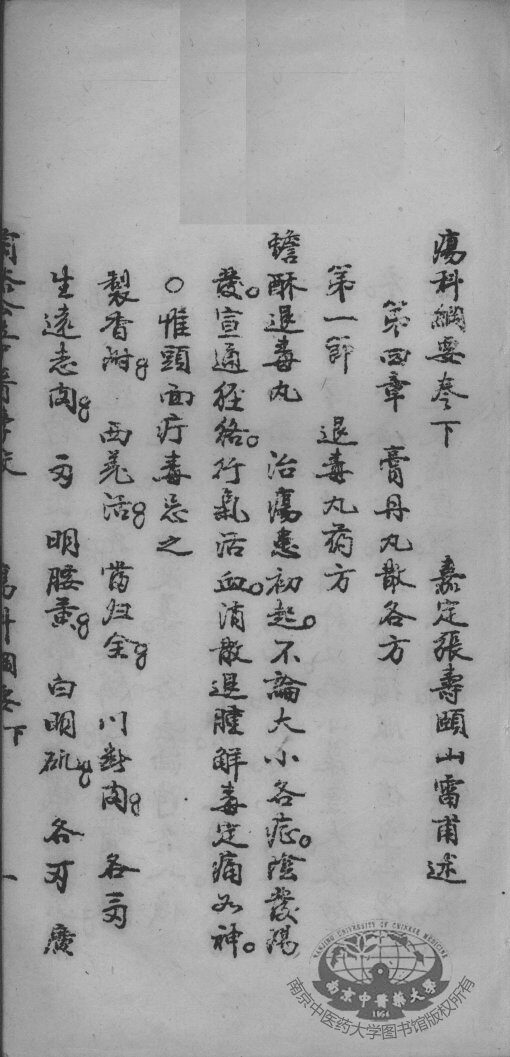 瘍科綱要卷下　嘉定張壽頤山雷甫述
第四章　膏丹丸散各方
第一節　退毒丸药方
蟾酥退毒丸　治瘍患初起。不論大小各症。陰發陽
發。宣通徑絡。行氣活血。消散退腫解毒定痛如神。
○惟頭面疔毒忌之
製香附　西羌活　當归全　川斷肉　各三
生遠志肉　明腰黃　白明矾　各　廣
瘍科綱要下　一
NANJING UNIVERSITY OF CHINESE MEDICINE
南京中醫藥大學
1954
南京中医药大学图书馆版权所有